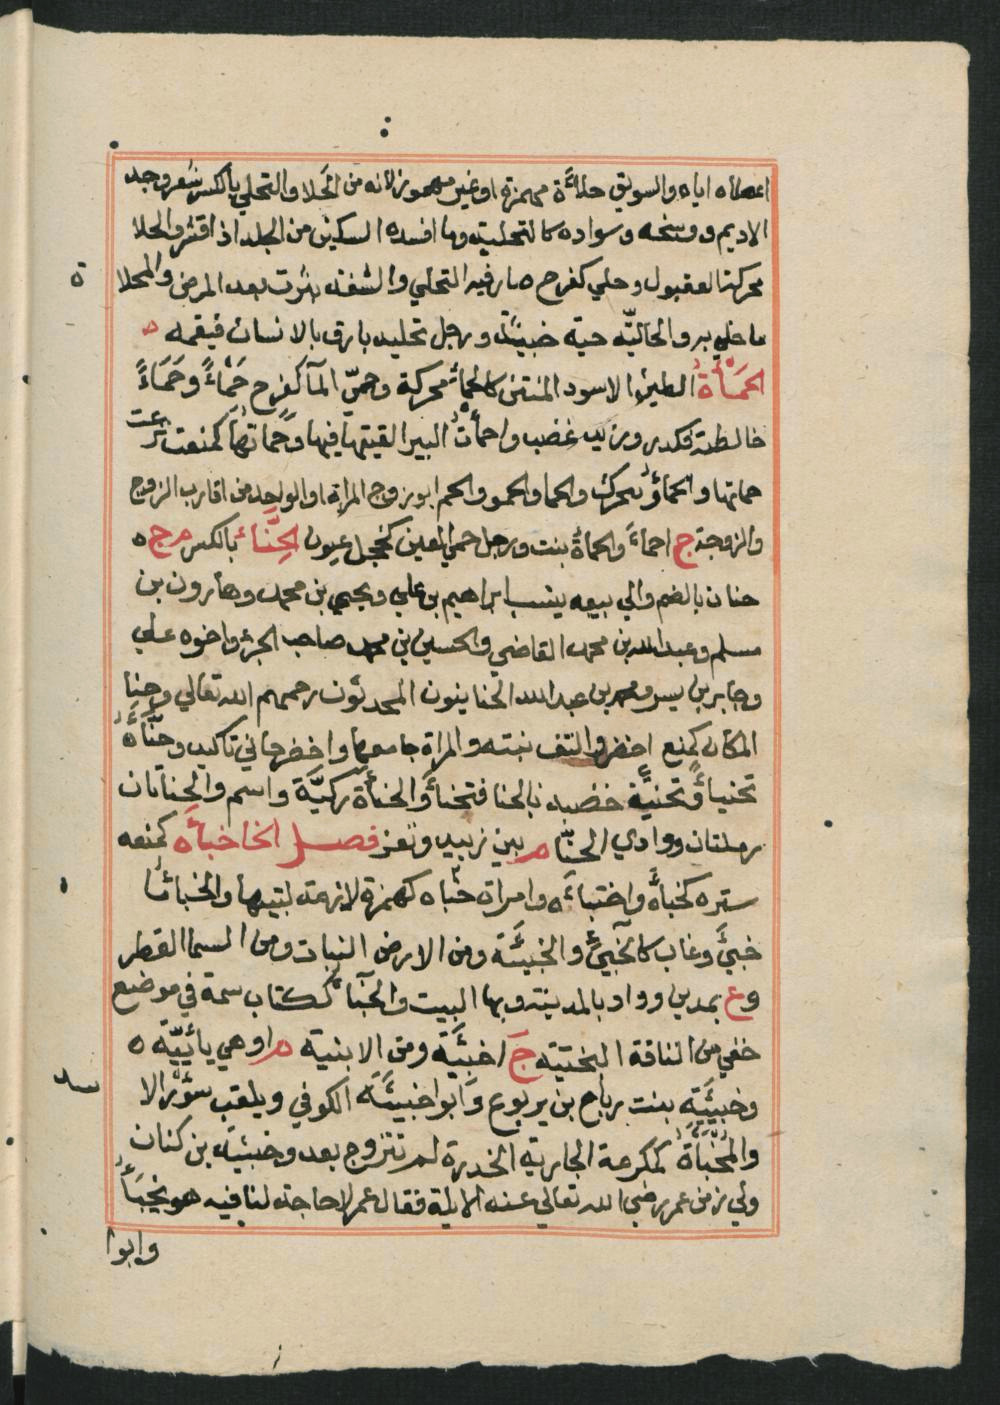 اعطاه اياه والسويق حلاءة مهمزة او غير مهموز لانه من الحلا والتحلي بالكسر شعر وجه
الاديم ووسخه وسواده كالتحلية وما افسده السكين من الجلد اذا قشر والحلا
محركة العقبول وحلي كفرح صار فيه التحلي والشفة بثرت بعد المرض والمحلاة
ما حلي به والحاليّة حية خبيثة ورجل تحلية يلزق بالانسان فيغمه ه
الحَمْأَةُ الطين الاسود المنتن كالحمأ محركة وحمئ المآ كفرح حَمْاءً وحَمَاءً
خالطته فكدر وزيد غضب واحمأتُ البير القيتها فيها وحماتها كمنعت نزعت
حماتها والحمأ ويحرك والحما والحمو والحم ابو زوج المراة او الواحد من اقارب الزوج
والزوجة ج احماء والحماة نبت ورجل حمئ العين كخجل عيون الحِنَّاء بالكسر م ج ه
حنان بالضم والي بيعه ينسب ابراهيم بن علي ويحيي بن محمد وهارون بن
مسلم وعبد الله بن محمد القاضي والحسين بن محمد صاحب الجزء واخوه علي
وجابر بن يسر ومحمد بن عبد الله الحناييون المحدثون رحمهم الله تعالي وحنا
المكان كمنع اخضر والتف نبته والمراة جامعها واخضر حاني تاكيد وحنّأه
تحنياً وتحنيّة خضبه بالحنا فتحنأ والحنأة ركيّة واسم والحناءتان
رملتان ووادي الحنّا م بين زبيد وتعز فصل الخا خبأه كمنعه
ستره كخبأه واختبأه وامراة خبأه كهمزة لازمة لبيتها والخبأ ما
خبئ وغاب كالخبئ والخبيئة ومن الارض النبات ومن السما القطر
وع بمدين وواد بالمدينة وبها البيت والخبآ ككتاب سمة في موضع
خفي من الناقة النجيبة ج اخبئة ومن الابنية م او هي يائيّة ه
وخبيئة بنت رباح بن يربوع وابو اخبيئة الكوفي ويلقب سؤر الا سد
والمُخَبَّأَةُ كمكرمة الجارية الخدرة لم تتزوج بعد وخبيئة بن كنان
ولي زمن عمر رضي الله تعالي عنه الابلة فقال عمر لا حاجة لنا فيه هو يخبأ
وابوا